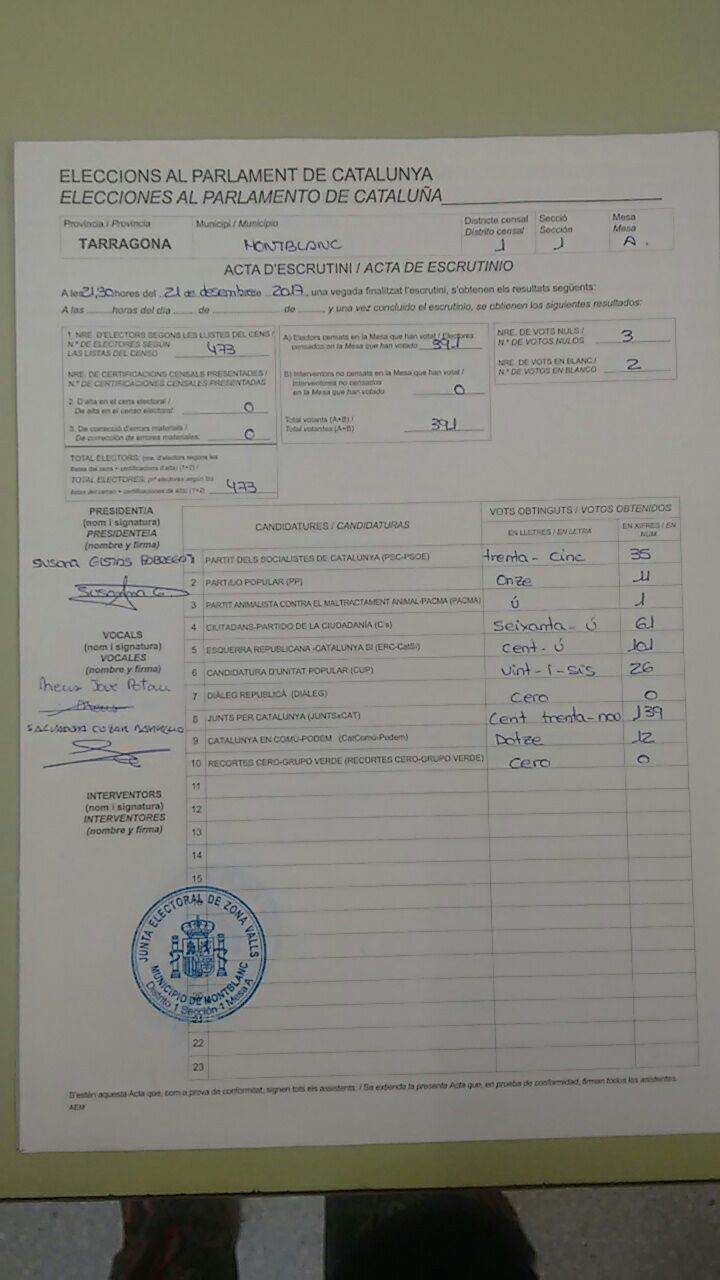 ELECCIONS AL PARLAMENT DE CATALUNYA
ELECCIONES AL PARLAMENTO DE CATALUÑA
Província / Provincia
TARRAGONA
Municipi / Municipio
MONTBLANC
Districte censal
Distrito censal
1
Secció
Sección
1
Mesa
Mesa
A.
ACTA D'ESCRUTINI / ACTA DE ESCRUTINIO
A les 21,30 hores del 21 de desembre de 2017, una vegada finalitzat l'escrutini, s'obtenen els resultats següents:
A las ........ horas del día ...... de ........ de ........, y una vez concluido el escrutinio, se obtienen los siguientes resultados:
1. NRE. D'ELECTORS SEGONS LES LLISTES DEL CENS /
N.º DE ELECTORES SEGÚN
LAS LISTAS DEL CENSO 473
NRE. DE CERTIFICACIONS CENSALS PRESENTADES /
N.º DE CERTIFICACIONES CENSALES PRESENTADAS
2. D'alta en el cens electoral /
De alta en el censo electoral: 0
3. De correcció d'errors materials /
De corrección de errores materiales: 0
TOTAL ELECTORS: (nre. d'electors segons les
llistes del cens + certificacions d'alta) (1+2) /
TOTAL ELECTORES: (nº electores según las
listas del censo + certificaciones de alta) (1+2) 473
A) Electors censats en la Mesa que han votat / Electores
censados en la Mesa que han votado 391
B) Interventors no censats en la Mesa que han votat /
Interventores no censados
en la Mesa que han votado 0
Total votants (A+B) /
Total votantes (A+B) 391
NRE. DE VOTS NULS /
N.º DE VOTOS NULOS 3
NRE. DE VOTS EN BLANC /
N.º DE VOTOS EN BLANCO 2
PRESIDENT/A
(nom i signatura)
PRESIDENTE/A
(nombre y firma)
Susana
Susana G
VOCALS
(nom i signatura)
VOCALES
(nombre y firma)
INTERVENTORS
(nom i signatura)
INTERVENTORES
(nombre y firma)
CANDIDATURES / CANDIDATURAS
VOTS OBTINGUTS / VOTOS OBTENIDOS
EN LLETRES / EN LETRA
EN XIFRES / EN NÚM.
1 PARTIT DELS SOCIALISTES DE CATALUNYA (PSC-PSOE) trenta-cinc 35
2 PARTIDO POPULAR (PP) Onze 11
3 PARTIT ANIMALISTA CONTRA EL MALTRACTAMENT ANIMAL-PACMA (PACMA) Ú 1
4 CIUTADANS-PARTIDO DE LA CIUDADANÍA (C's) Seixanta-ú 61
5 ESQUERRA REPUBLICANA -CATALUNYA SÍ (ERC-CatSí) Cent-Ú 101
6 CANDIDATURA D'UNITAT POPULAR (CUP) Vint-i-sis 26
7 DIÀLEG REPUBLICÀ (DIÀLEG) Cero 0
8 JUNTS PER CATALUNYA (JUNTSxCAT) Cent trenta-nou 139
9 CATALUNYA EN COMÚ-PODEM (CatComú-Podem) Dotze 12
10 RECORTES CERO-GRUPO VERDE (RECORTES CERO-GRUPO VERDE) Cero 0
11
12
13
14
15
21
22
23
JUNTA ELECTORAL DE ZONA VALLS
MUNICIPIO DE MONTBLANC
Distrito 1 Sección 1 Mesa A
S'estén aquesta Acta que, com a prova de conformitat, signen tots els assistents. / Se extiende la presente Acta que, en prueba de conformidad, firman todos los asistentes.
AEM